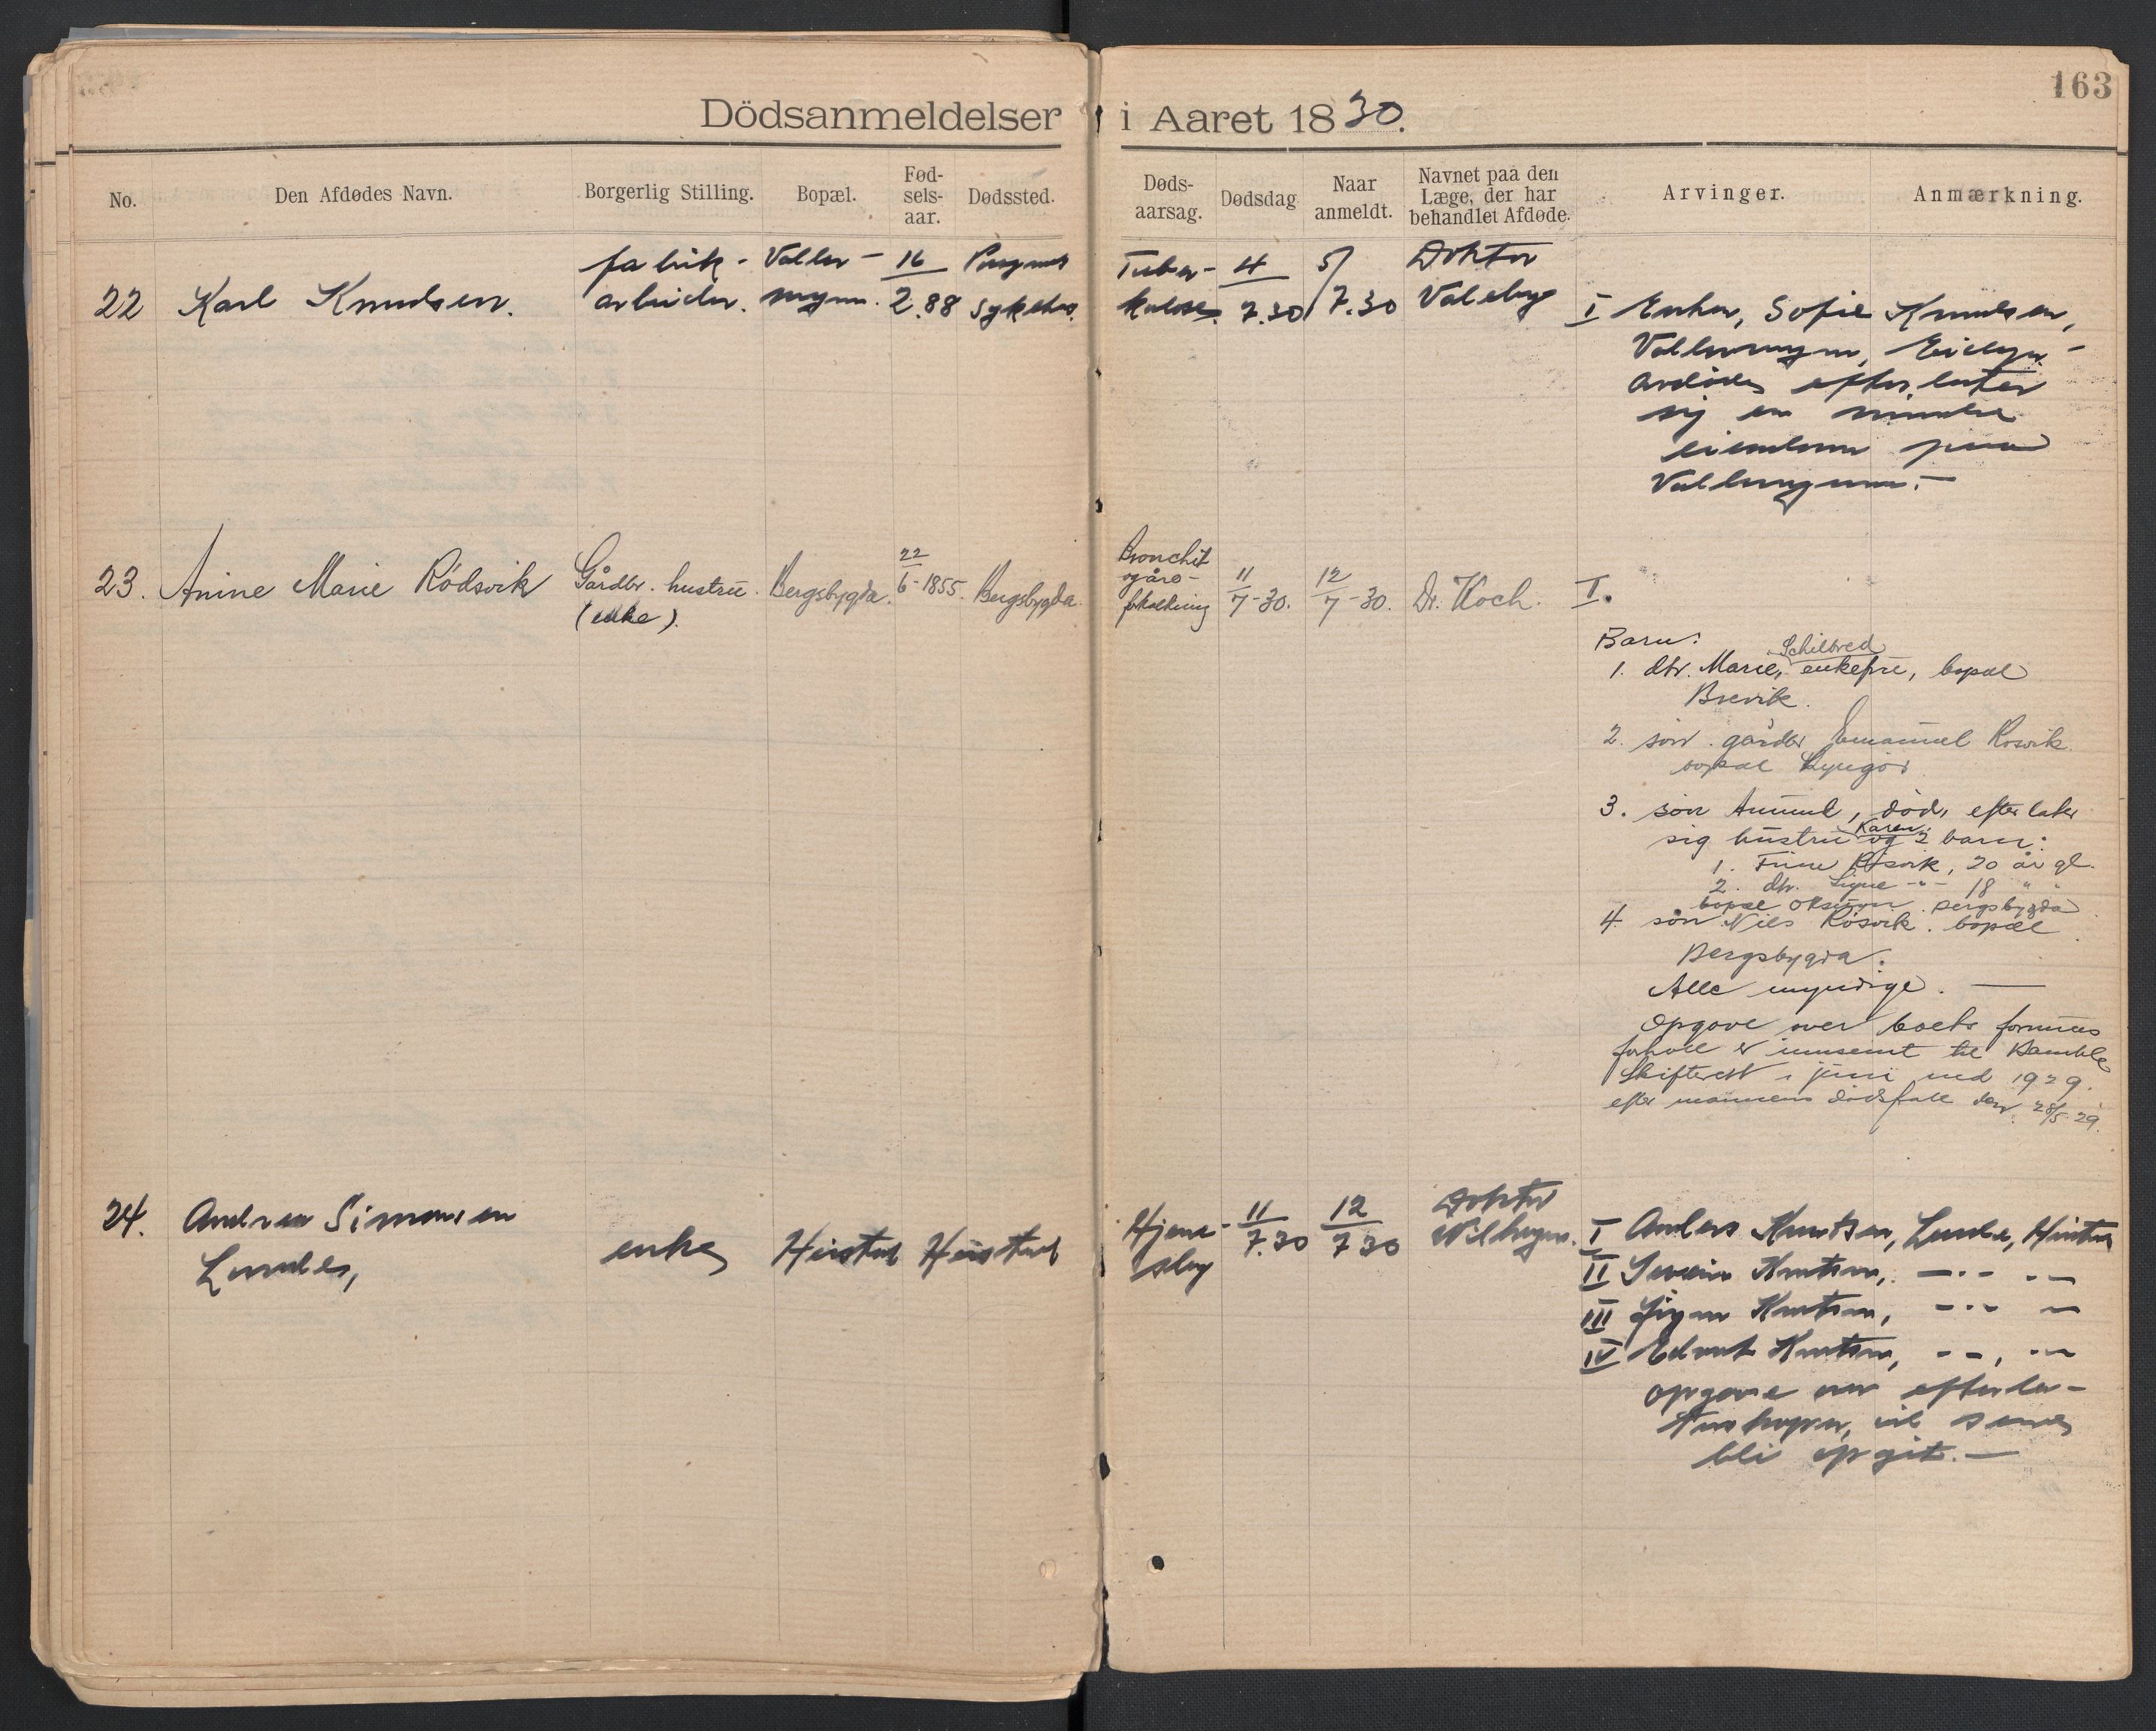 163
Dödsanmeldelser i Aaret 1830.
No. Den Afdødes Navn. Borgerlig Stilling. Bopæl. Fød-sels-aar. Dødssted. Døds-aarsag. Dødsdag Naar anmeldt. Navnet paa den Læge, der har behandlet Afdøde. Arvinger. Anmærkning.
22 Karl Knudsen. fabrik-arbeider. Valler-myrn. 16/2.88 Porsgrund sykehus. Tuber-kulose. 4/7.30 5/7.30 Doktor
I Enken, Sofie Knudsen,
Vallermyrn, Eidanger-
avdøde efterlater
sig en mindre
eiendom paa
Vallermyrn.-
23. Anine Marie Rødsvik Gårdbr. hustru. (enke). Bergsbygda. 22/6-1855. Bergsbygda. Bronchit og åre-forkalkning 11/7-30. 12/7-30. Dr. Koch. I.
Barn:
Schilbred
1. dtr. Marie, enkefru, bopæl
Brevik.
2. søn. gårdbr Emanuel Rosvik
bopæl Lyngør
3. søn, død, efterlater
Karen
sig hustru og 2 barn:
1. Rösvik, 20 år gl.
2. dtr. Signe -"- 18 " "
bopæl Bergsbygda
4. søn Nils Rösvik. bopæl
Bergsbygda.
Alle myndige. —
Opgave over boets formues
forhold er innsendt til Bamble
Skifterett i juni md 1929.
efter mannens dødsfall den 28/5-29.
24. Andrea Simonsen
Lunde, enke Heistad Heistad Hjerne-slag 11/7.30 12/7 30 Doktor
I Anders Knutsen, Lunde,
II Severin Knutsen, -..- .-
III Knutsen, -..- -
IV Edvart Knutsen, - -, .-
opgave over efterla-
tenskaper, vil senere
bli opgit.-